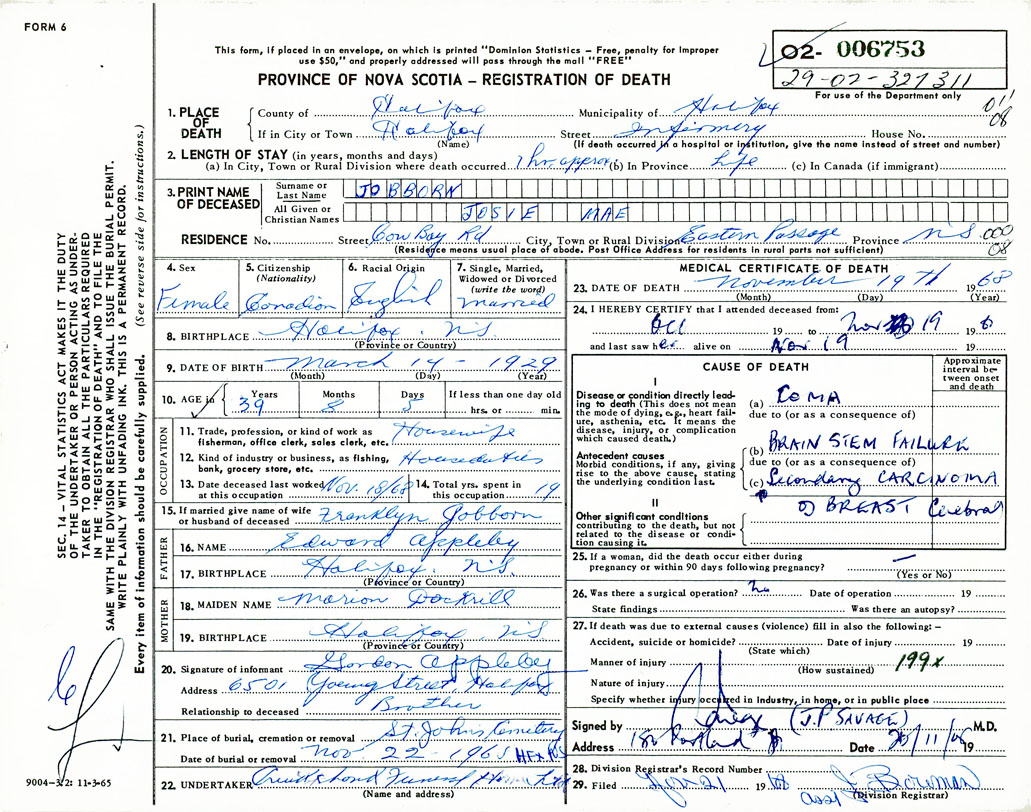 FORM 6
This form, if placed in an envelope, on which is printed "Dominion Statistics – Free, penalty for improper
use $50," and properly addressed will pass through the mail "FREE"
PROVINCE OF NOVA SCOTIA – REGISTRATION OF DEATH
02- 006753
29-02-327311
For use of the Department only
011
08
1. PLACE OF DEATH
County of Halifax Municipality of Halifax
If in City or Town Halifax Street Infirmery House No.
(Name) (If death occurred in a hospital or institution, give the name instead of street and number)
2. LENGTH OF STAY (in years, months and days)
(a) In City, Town or Rural Division where death occurred 1 hr. approx. (b) In Province Life (c) In Canada (if immigrant)
3. PRINT NAME OF DECEASED
Surname or Last Name JOBBORN
All Given or Christian Names JOSIE MAE
RESIDENCE No. Street Cow Bay Rd City, Town or Rural Division Eastern Passage Province N.S.
000
08
(Residence means usual place of abode. Post Office Address for residents in rural parts not sufficient)
4. Sex Female
5. Citizenship (Nationality) Canadian
6. Racial Origin English
7. Single, Married, Widowed or Divorced (write the word) Married
8. BIRTHPLACE Halifax, N.S.
(Province or Country)
9. DATE OF BIRTH March 14 - 1929
(Month) (Day) (Year)
10. AGE in Years 39 Months 8 Days 5 If less than one day old hrs. or min.
OCCUPATION
11. Trade, profession, or kind of work as fisherman, office clerk, sales clerk, etc. Housewife
12. Kind of industry or business, as fishing, bank, grocery store, etc. Houseduties
13. Date deceased last worked at this occupation Nov. 18/68 14. Total yrs. spent in this occupation 19
15. If married give name of wife or husband of deceased Franklyn Jobborn
FATHER
16. NAME Edward Appleby
17. BIRTHPLACE Halifax, N.S.
(Province or Country)
MOTHER
18. MAIDEN NAME Marion Dockrill
19. BIRTHPLACE Halifax, N.S
(Province or Country)
20. Signature of informant Gordon Appleby
Address 6501 Young Street, Halifax
Relationship to deceased Brother
21. Place of burial, cremation or removal St. Johns Cemetery
Date of burial or removal Nov. 22 - 1968 HFX
22. UNDERTAKER Cruikshank Funeral Home
(Name and address)
MEDICAL CERTIFICATE OF DEATH
23. DATE OF DEATH November 19TH 1968
(Month) (Day) (Year)
24. I HEREBY CERTIFY that I attended deceased from:
Oct 19 to Nov 19 196
and last saw her alive on Nov 19 19
CAUSE OF DEATH
Approximate interval between onset and death
I
Disease or condition directly leading to death (This does not mean the mode of dying, e.g., heart failure, asthenia, etc. It means the disease, injury, or complication which caused death.)
(a) COMA
due to (or as a consequence of)
Antecedent causes
Morbid conditions, if any, giving rise to the above cause, stating the underlying condition last.
(b) BRAIN STEM FAILURE
due to (or as a consequence of)
(c) Secondary CARCINOMA
OF BREAST Cerebral
II
Other significant conditions
contributing to the death, but not related to the disease or condition causing it.
25. If a woman, did the death occur either during
pregnancy or within 90 days following pregnancy?
(Yes or No)
26. Was there a surgical operation? No Date of operation 19
State findings Was there an autopsy?
27. If death was due to external causes (violence) fill in also the following: –
Accident, suicide or homicide? Date of injury 19
(State which)
Manner of injury
(How sustained) 199x
Nature of injury
Specify whether injury occurred in industry, in home, or in public place
Signed by (J.P SAVAGE) M.D.
Address Portland Date 20/11/68 19
28. Division Registrar's Record Number
29. Filed Nov 21 1968 Bowman
(Division Registrar)
SEC. 14 – VITAL STATISTICS ACT MAKES IT THE DUTY
OF THE UNDERTAKER OR PERSON ACTING AS UNDER-
TAKER TO OBTAIN ALL THE PARTICULARS REQUIRED
IN THE "REGISTRATION OF DEATH" AND TO FILE THE
SAME WITH THE DIVISION REGISTRAR WHO SHALL ISSUE THE BURIAL PERMIT.
WRITE PLAINLY WITH UNFADING INK. THIS IS A PERMANENT RECORD.
Every item of information should be carefully supplied. (See reverse side for instructions.)
9004-3/2: 11-3-65